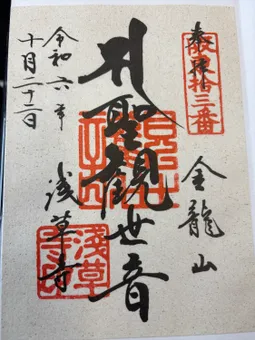 奉拝
坂東拾三番
金龍山
聖観世音
浅草寺
令和六年
十月二十二日
浅草寺